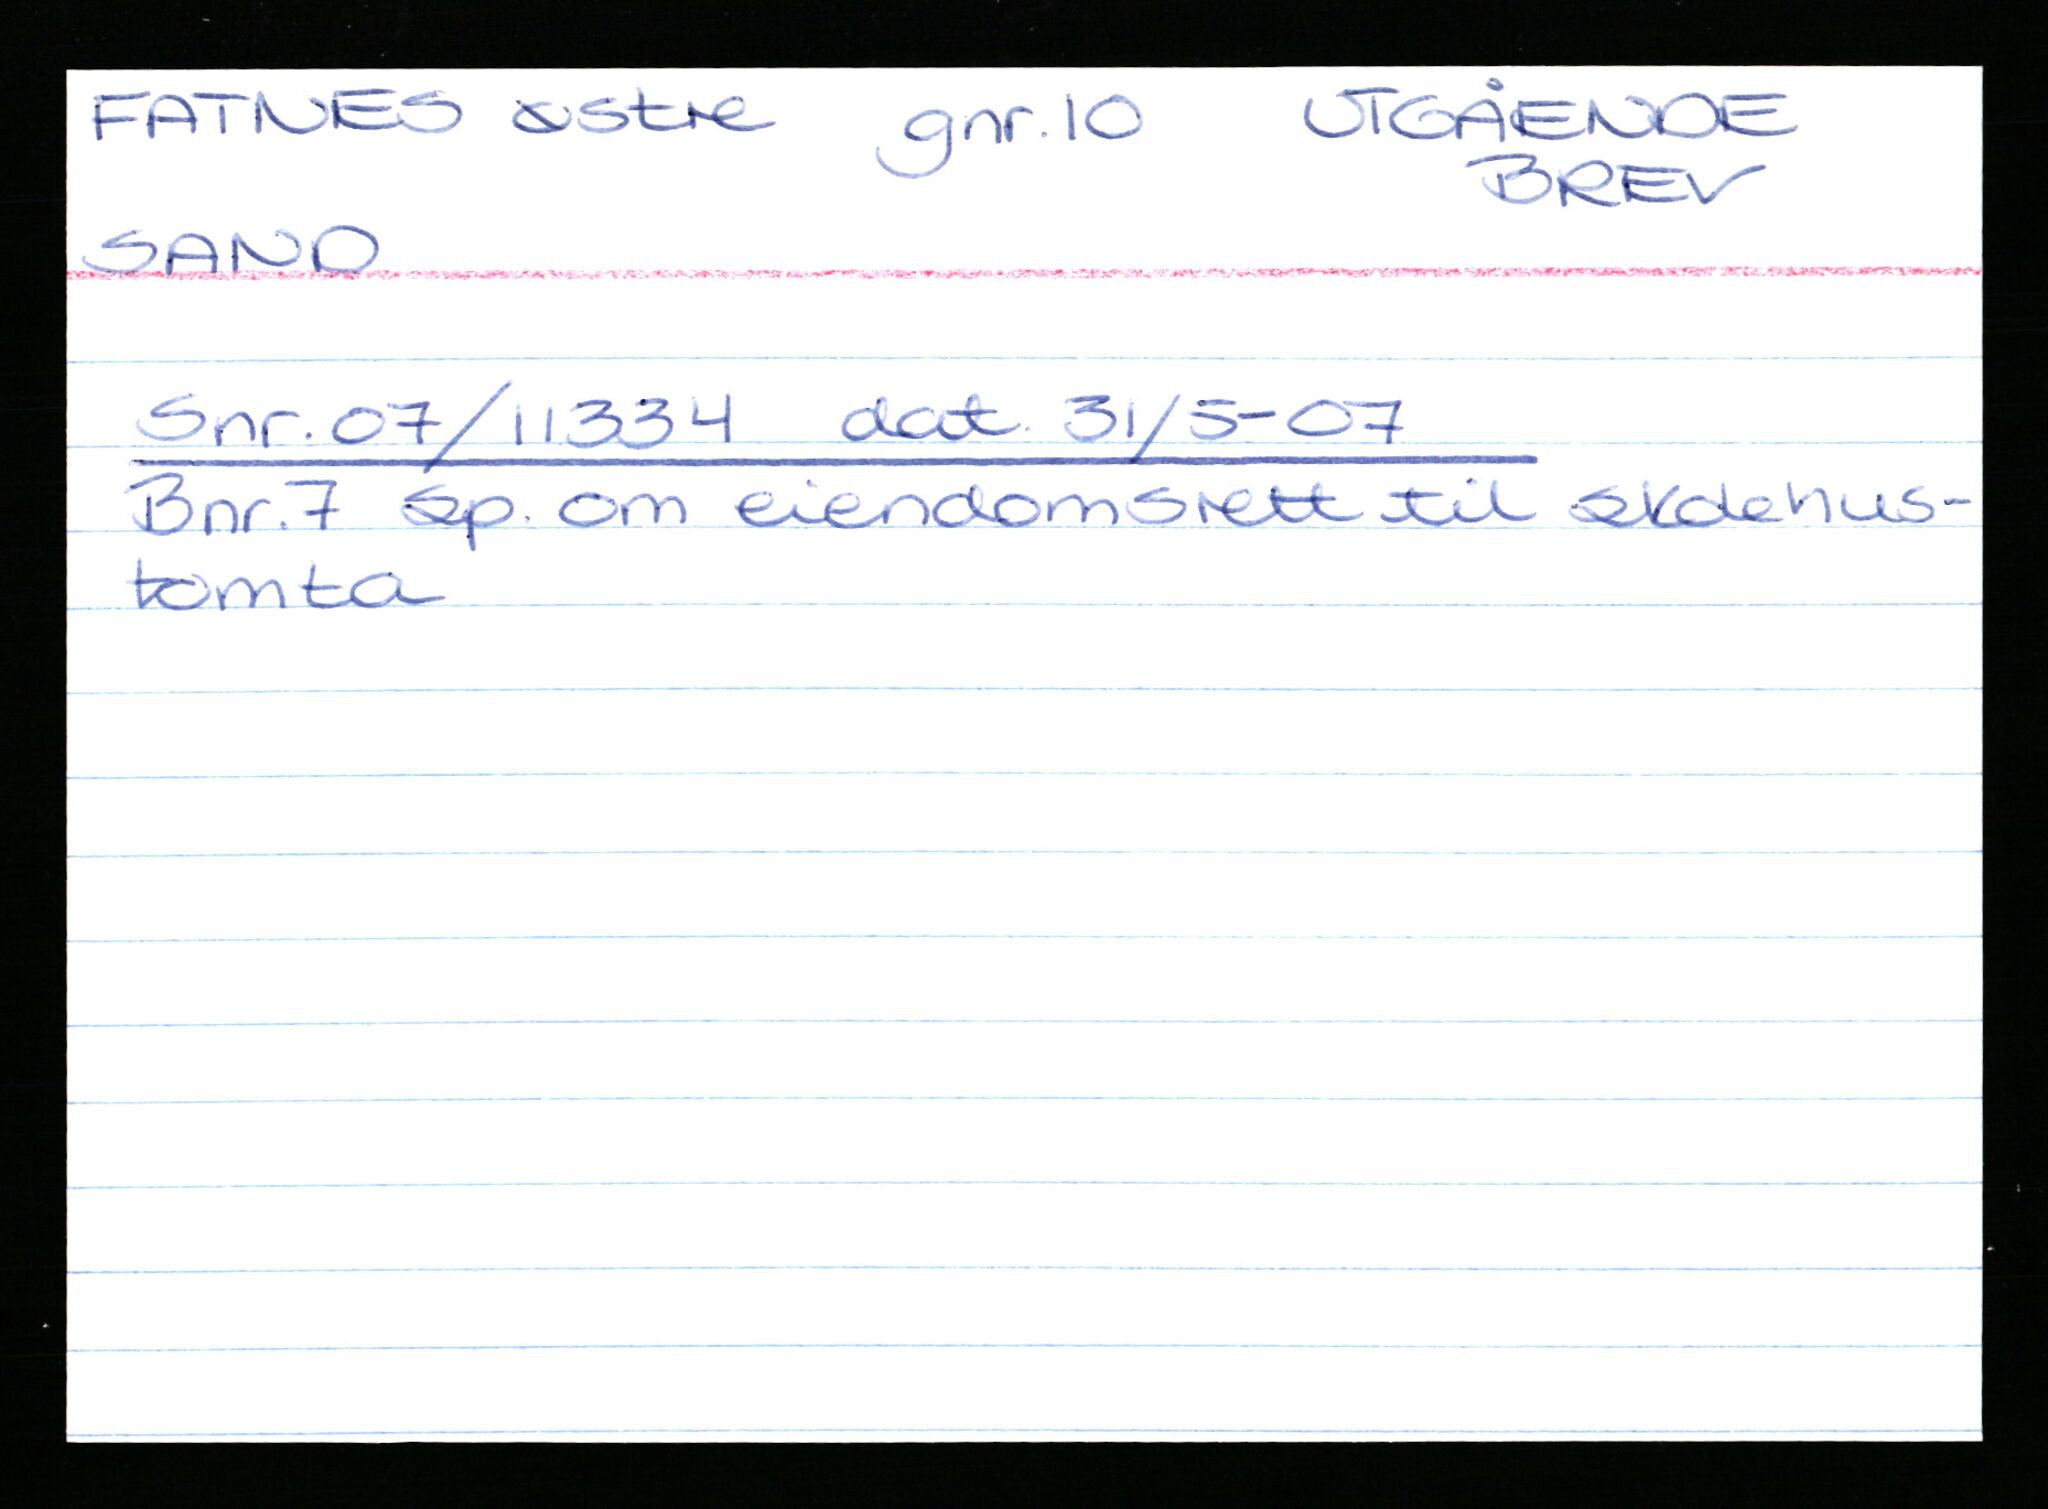 FATNES østre gnr. 10 UTGÅENDE
BREV
SAND
Snr. 07/11334 dat. 31/5-07
Bnr. 7 sp. om eiendomsrett til skolehus-
tomta